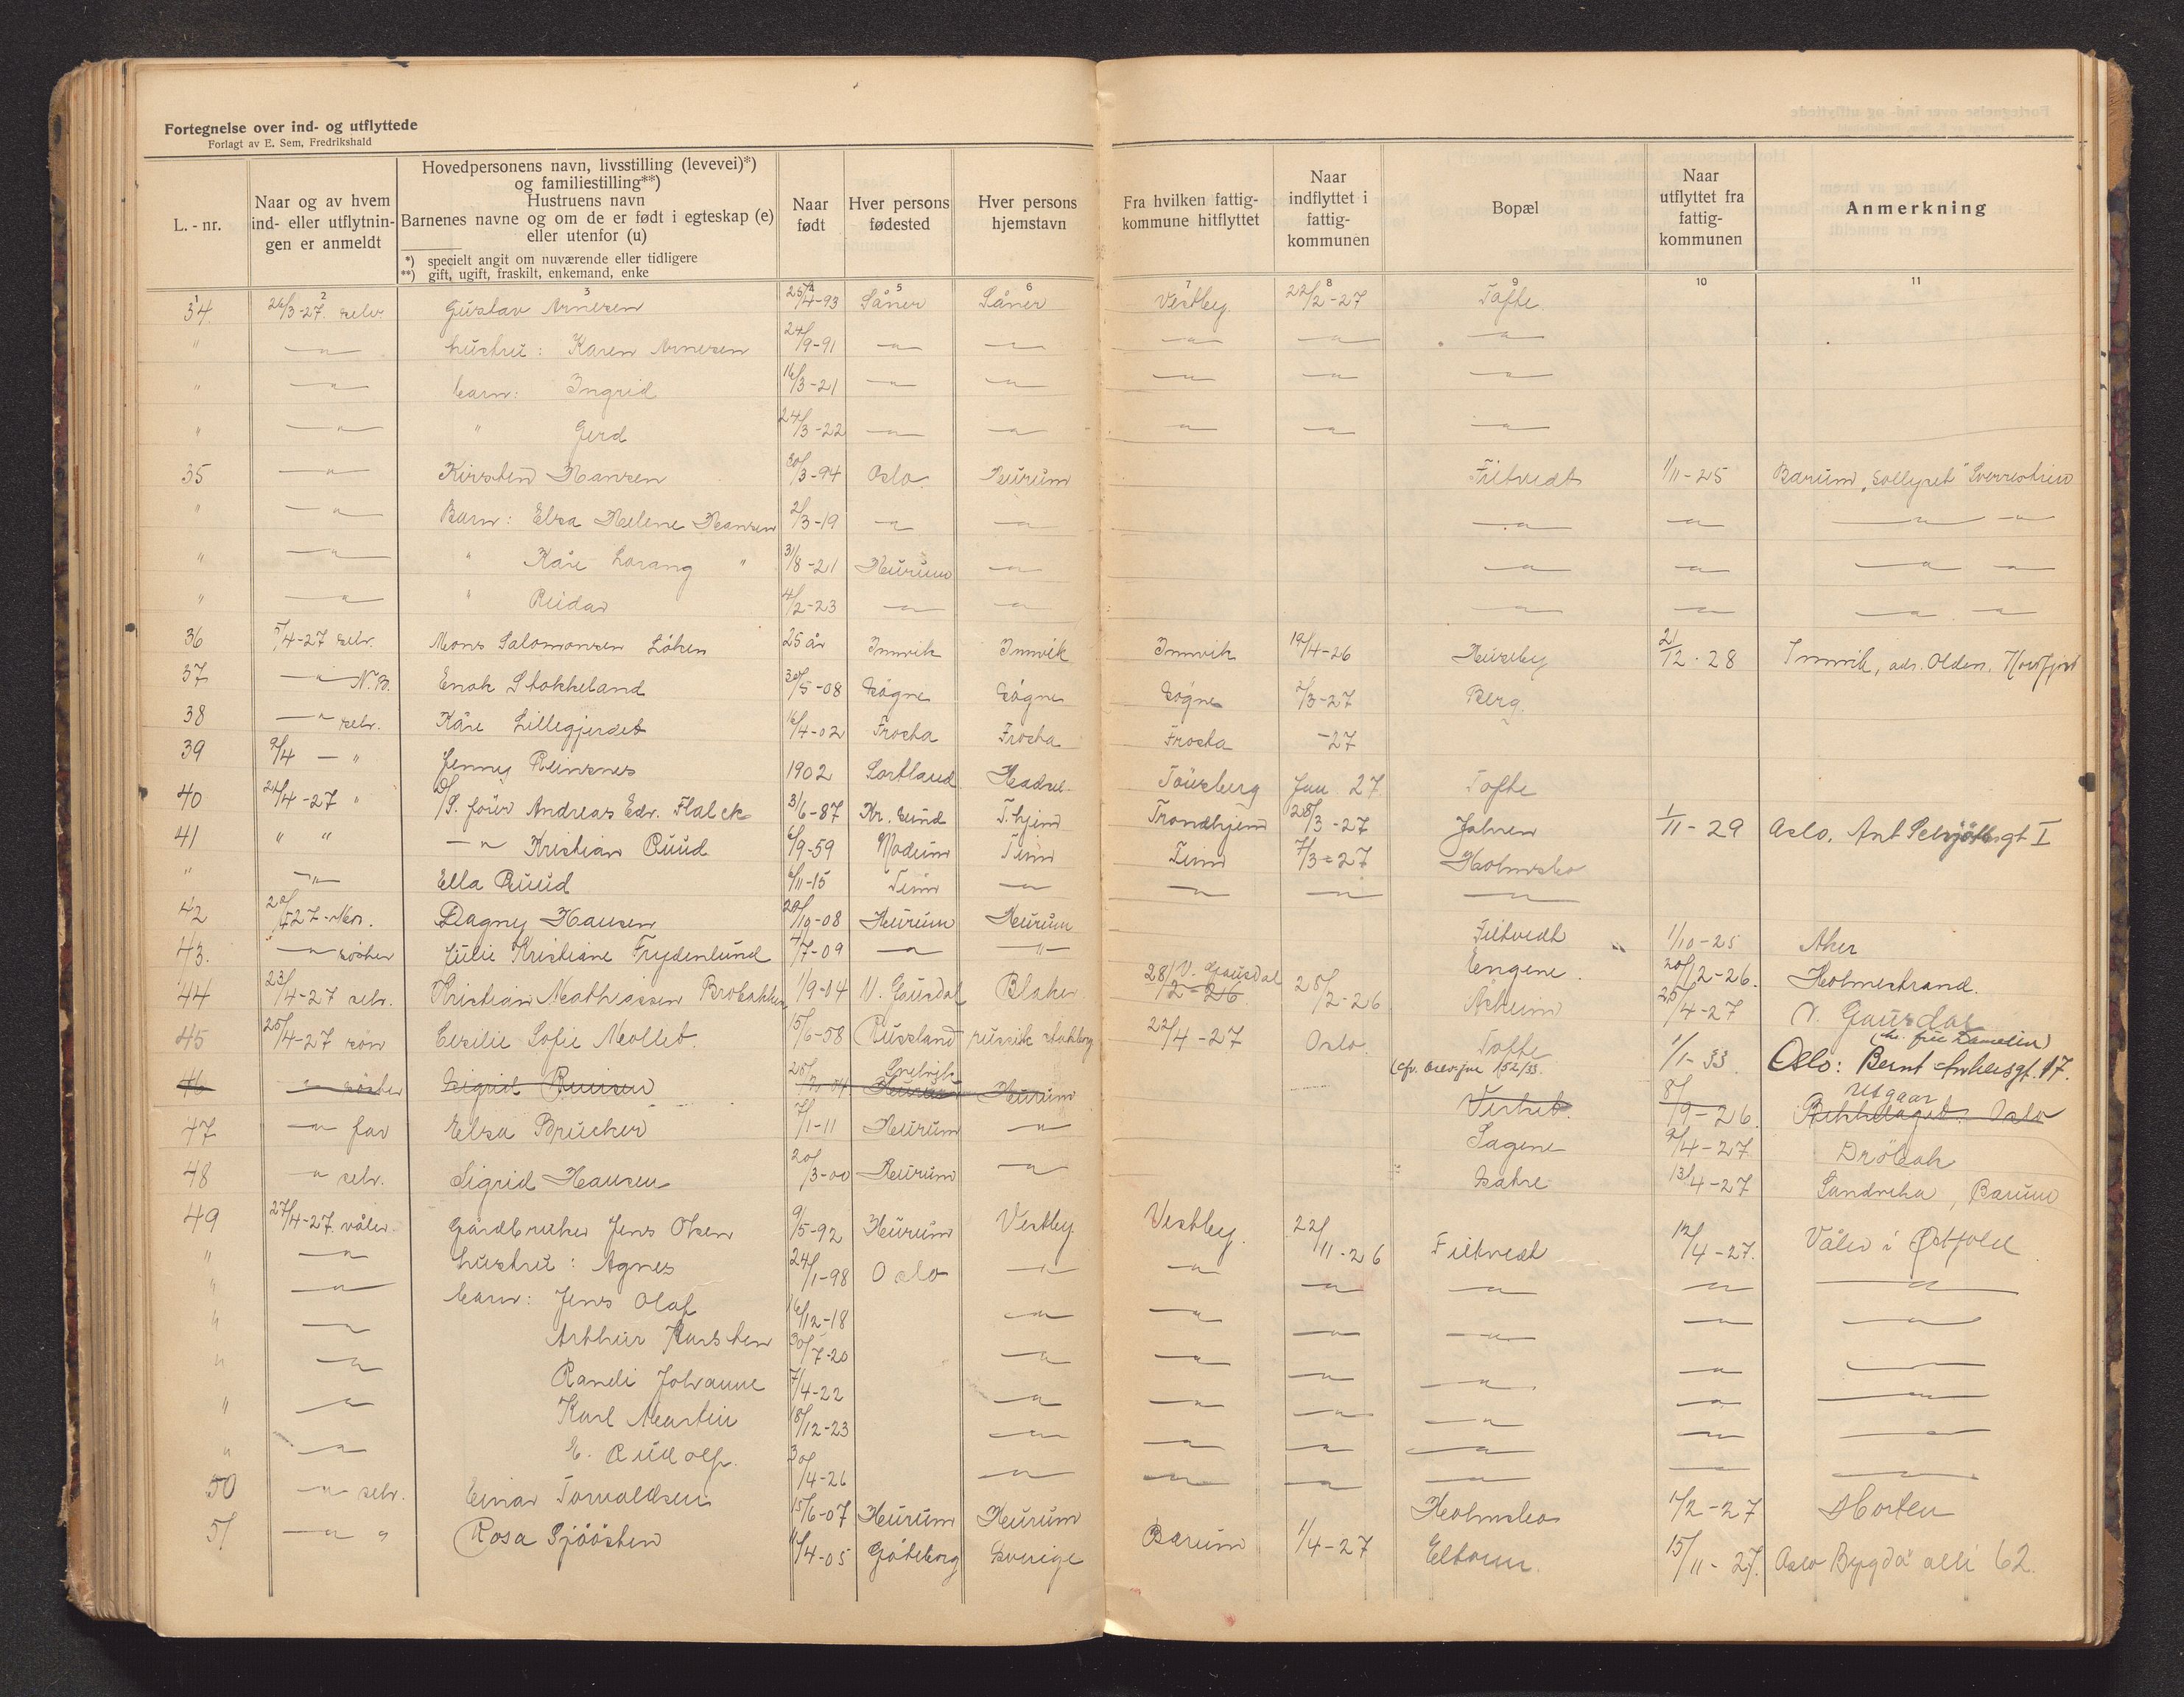 Fortegnelse over ind- og utflyttede
Forlagt av E. Sem, Fredrikshald
L.-nr.
Naar og av hvem ind- eller utflytningen er anmeldt
Hovedpersonens navn, livsstilling (levevei)*)
og familiestilling**)
Hustruens navn
Barnenes navne og om de er født i egteskap (e)
eller utenfor (u)
*) specielt angit om nuværende eller tidligere
**) gift, ugift, fraskilt, enkemand, enke
Naar født
Hver persons fødested
Hver persons hjemstavn
Fra hvilken fattigkommune hitflyttet
Naar indflyttet i fattigkommunen
Bopæl
Naar utflyttet fra fattigkommunen
Anmerkning
1 2 3 4 5 6 7 8 9 10 11
34 26/3-27. selv. Gustav Arnesen 25/4-93 Såner Såner Vestby 22/2-27 Tofte.
" —"— hustru: Karen Arnesen 24/9-91 —"— —"— —"— —"— —"—
" —"— barn: Ingrid 16/3-21 —"— —"— —"— —"— —"—
" —"— " Gerd 24/3-22 —"— —"— —"— —"— —"—
35 —"— Kirsten Hansen 30/3-94 Oslo Hurum Filtvedt 1/11-25 Bærum "Sollyset"
" —"— Barn: Elsa Helene Hansen 2/3-19 —"— —"— —"— —"— —"— —"—
" —"— " Kåre Lorang " 31/8-21 Hurum —"— —"— —"— —"— —"—
" —"— " Reidar 4/2-23 —"— —"— —"— —"— —"— —"—
36 5/4-27 selv. Mons Salomonsen Löken 25 år Innvik Innvik Innvik 19/4-26 Huseby 21/12-28 Innvik, adr. Olden, Nordfjord
37 —"— N.B. Enok Stokkeland 30/5-08 Søgne Søgne Søgne 2/3-27 Berg.
38 —"— selv. Kåre Lillegjerdet 16/4-02 Frosta Frosta Frosta -27
39 9/4 — " Jenny Reinsnes 1902 Sortland Hadsel Tönsberg Jan. 27 Tofte
40 24/4-27 " Andreas Edv. Flalck 3/6-87 Kr. sund T.hjem Trondhjem 28/3-27 Jahren 1/11-29 Oslo.
41 " " —"— Kristian Ruud 6/9-59 Modum Tinn Tinn 7/3-27 Holmsbo
" —"— Ella Ruud 6/11-15 Tinn —"— —"— —"— —"—
42 20/4 27 - Mor. Dagny Hansen 20/10-08 Hurum Hurum Filtvedt " 1/10-25 Aker
43. —"— söster Julie Kristiane Frydenlund 4/7-09 —"— —"— Engene. 20/12-26. Holmestrand.
44 23/4-27 selv. Kristian Mathiassen 1/9-04 V. Gausdal Blaker V. Gausdal 28/2-26 28/2-26 Åsheim 25/4-27 V. Gausdal
45 25/4-27 sön Cesilie Sofie Mollet. 15/6-58 Russland russisk statsborg 22/4-27 Oslo. Tofte 1/1-33 Oslo: Bernt Ankersgt. 17.
152/33.
46 —"— söster Sigrid 25/ -04 Hurum Hurum 8/9-26. Bekkelaget. Oslo
Utgaar
47 —"— far Elsa Brucker 7/1-11 Hurum —"— Sagene 9/4-27 Dröbak
48 —"— selv. Sigrid Hansen 20/3-00 Hurum —"— Sætre 13/4-27 Sandvika, Bærum
49 27/4-27 våler Gårdbruker Jens Olsen 9/5-92 Hurum Vestby Vestby 22/11-26 Filtvedt 12/4-27. Våler i Østfold
" —"— hustru: Agnes 24/1-98 Oslo —"— —"— —"— —"— —"— —"—
" —"— barn: Jens Olaf 16/12-18 —"— —"— —"— —"— —"— —"—
" —"— Arthur Karsten 30/7-20 —"— —"— —"— —"— —"— —"—
" —"— Randi Johanne 7/4-22 —"— —"— —"— —"— —"— —"—
" —"— Karl Martin 18/12-23 —"— —"— —"— —"— —"— —"—
" —"— E. Rudolf. 30/4-26 —"— —"— —"— —"— —"— —"—
50 —"— selv. Einar Torvaldsen 15/6-07 Hurum Hurum Holmsbo 1/2-27 Horten
51 —"— " Rosa Sjöösten 11/4-05 Göteborg Sverige Bærum 1/4-27 Eltorn. 15/11-27. Oslo Bygdö allé 62.